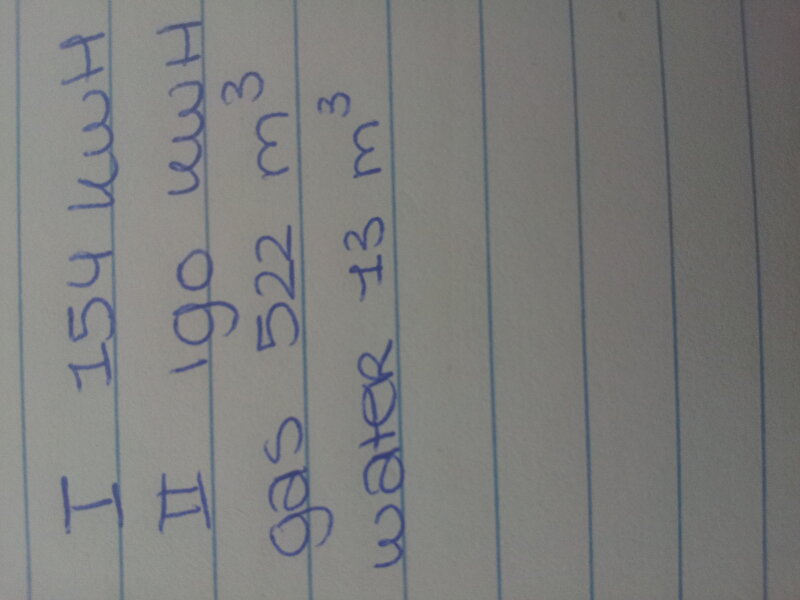 I 154 kwH
II 190 kwH
gas 522 m³
water 13 m³